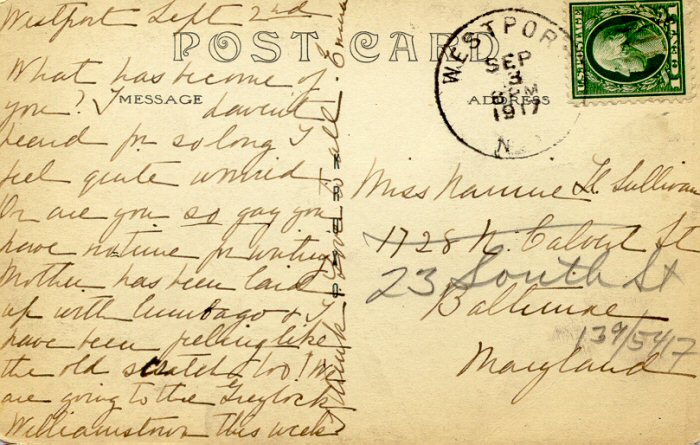 Westport Sept 2nd
POST CARD
MESSAGE
ADDRESS
What has become of
you? I havent
heard for so long I
feel quite worried.
Or are you so gay you
have no time for writing
Mother has been laid
up with lumbago & I
have been feeling like
the old scratch too! We
are going to the Greylock
Williamstown this week
Love to all
WESTPORT
SEP
3
6 PM
1917
N.
U.S. POSTAGE
Miss Nannie H. Sullivan
1728 N. Calvert St
23 South St
Baltimore
139/5417
Maryland